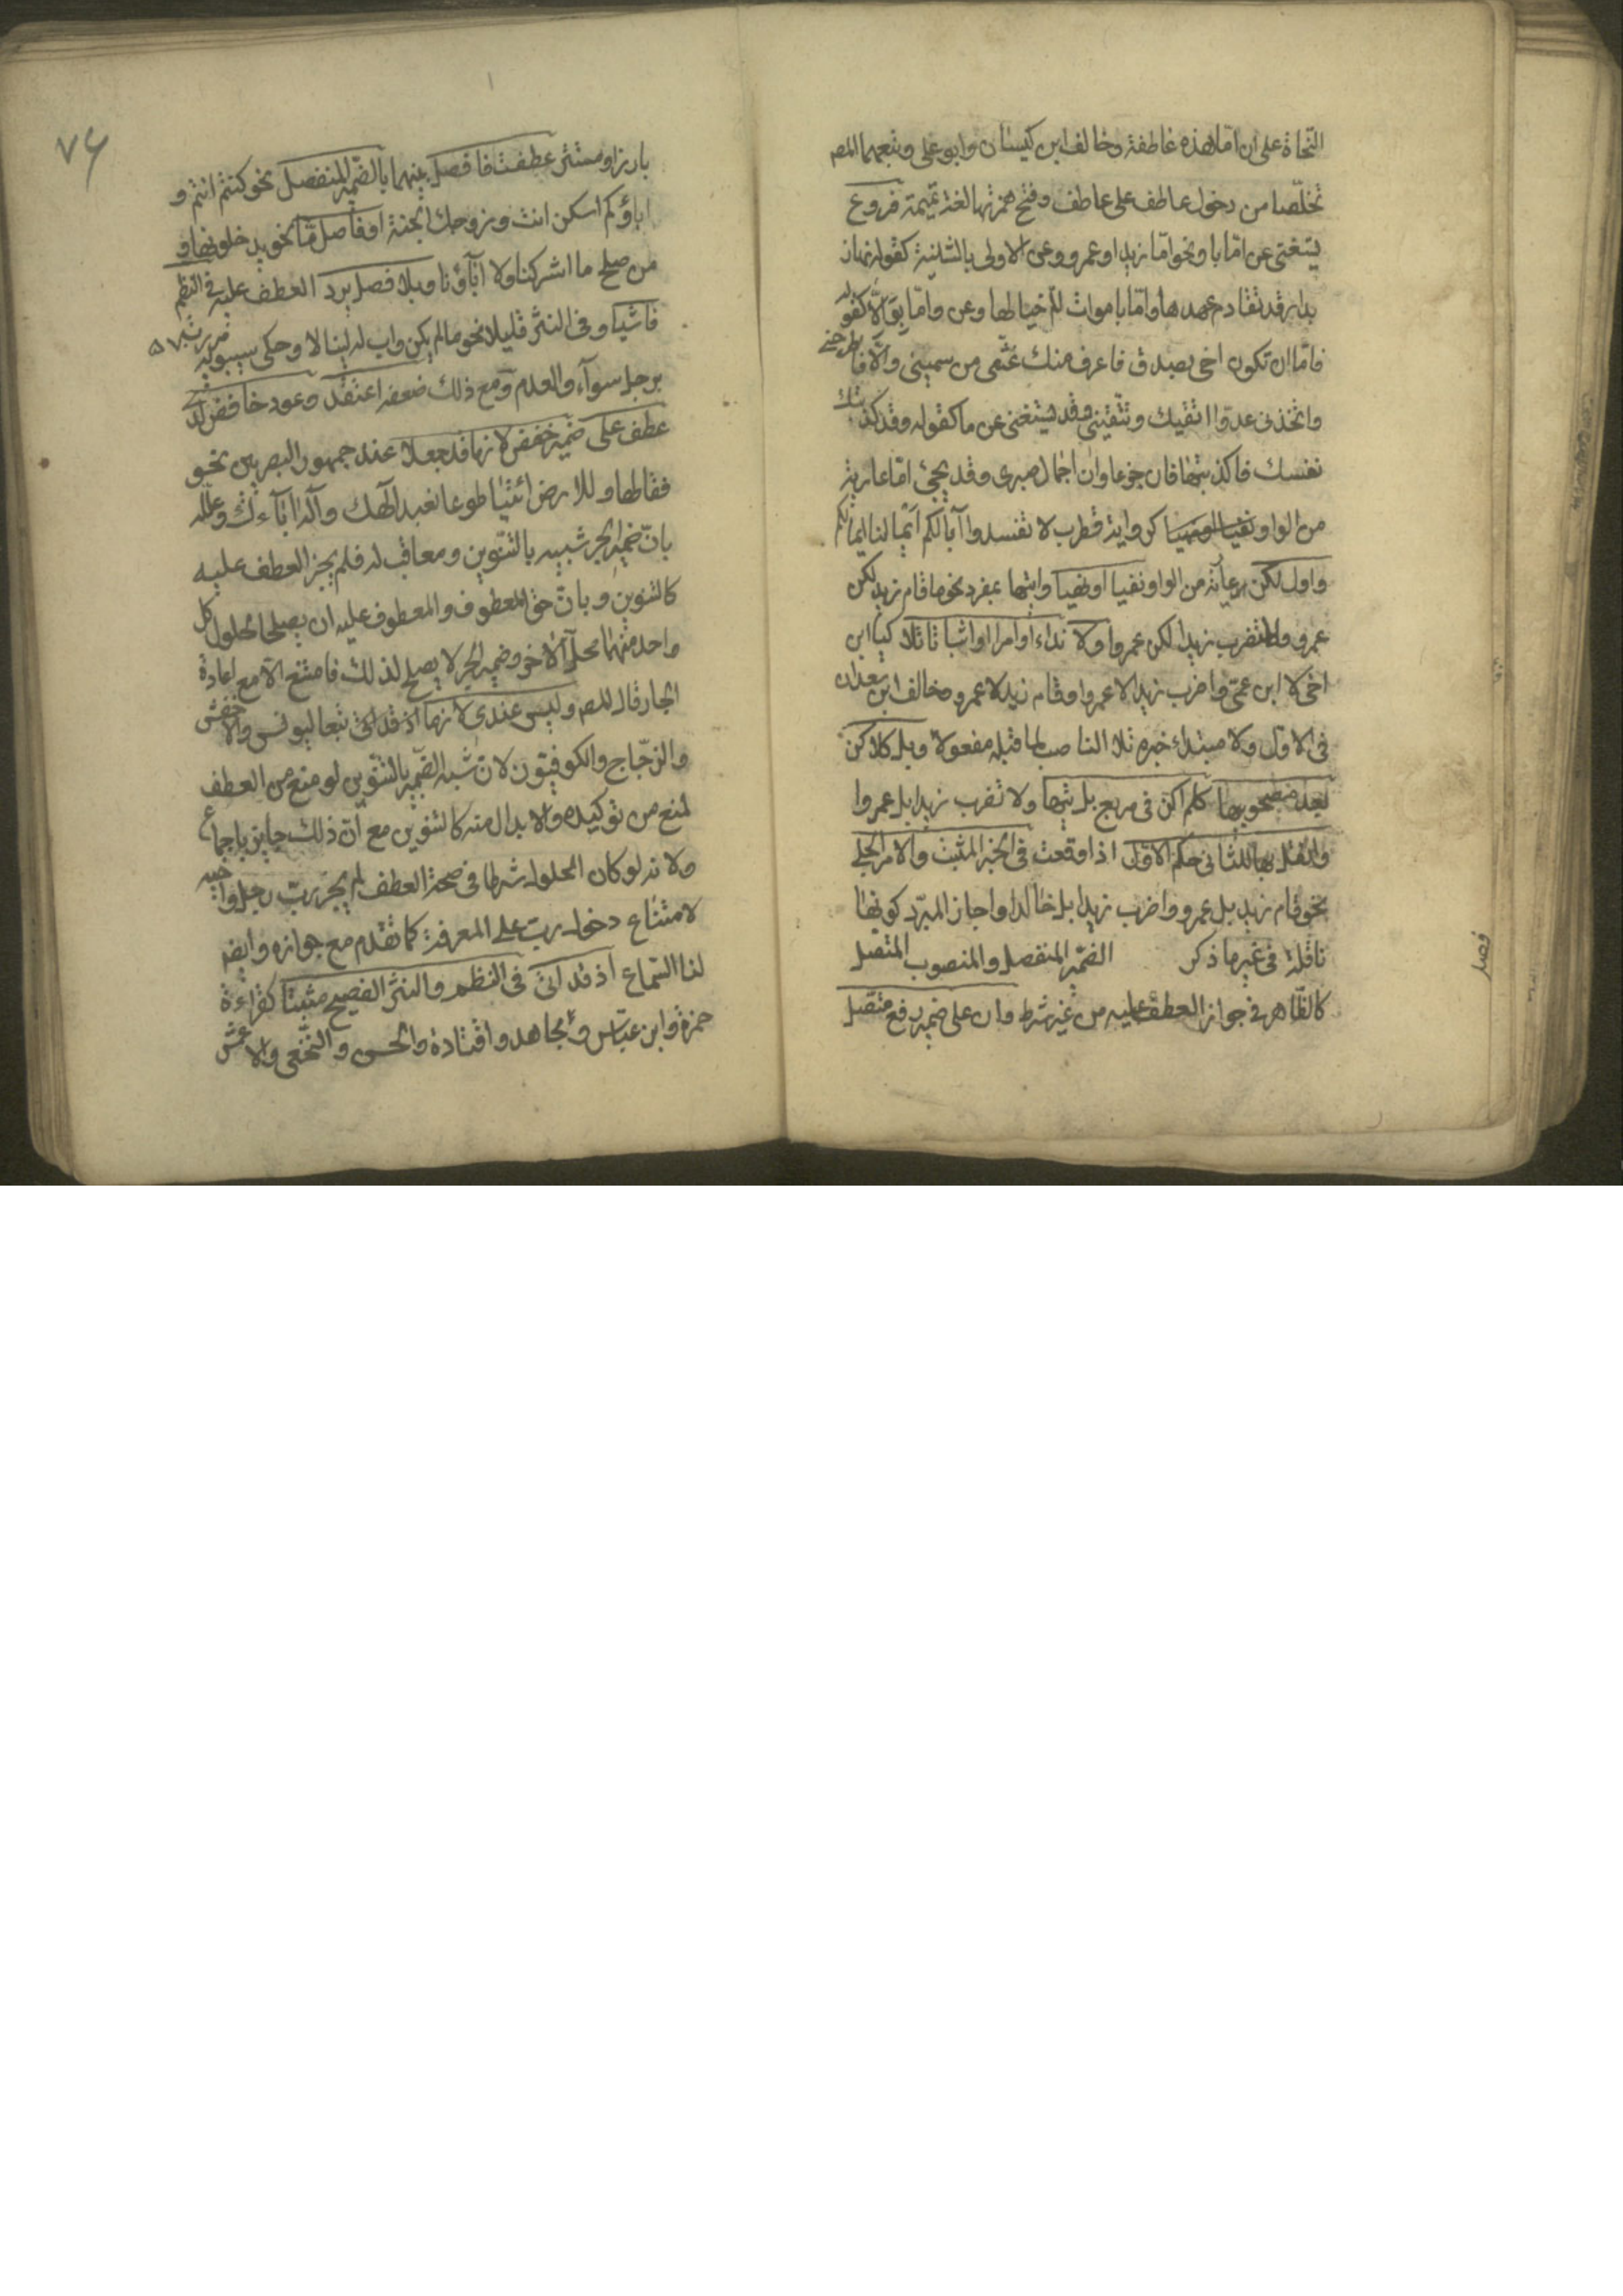 النحاة على ان اما هذه عاطفة وخالف ابن كيسان وابو على وتبعهما المص
تخلصا من دخول عاطف على عاطف وفتح همزتها لغة تميمة فروع
يستغنى عن اما باو نحو اما زيد او عمرو وعن الاولى بالثانية كقوله نهاض
بدار قد تقادم عهدها واما باموات الم خيالها وعن واما بوالا كقوله
فاما ان تكون اخى بصدق فاعرف منك غثى من سمينى والا فاطرحنى
واتخذنى عدوا اتقيك وتتقينى وقد يستغنى عن ما كقوله وقد كذبتك
نفسك فاكذبنها فان جزعا وان اجمال صبرى وقد يجئ اما عارية
من الواو كرواية قطرب لا تفسدوا آبالكم ايما لنا ايما لكم
واول لكن عارية من الواو نفيا او نهيا وايتها بمفرد نحو ما قام زيد لكن
عمرو ولا تضرب زيدا لكن عمروا ولا نداء او امرا او اثباتا تلا كيا ابن
اخى لا ابن عمى واضرب زيدا لا عمروا وقام زيد لا عمرو وخالف ابن سعدان
فى الاول ولا مبتداء خبره تلا الناصب لما قبله مفعولا وبل كلاكن
بعد مصحوبيها كلم اكن فى مربع بل تيها ولا تضرب زيدا بل عمروا
وانقل بها للثانى حكم الاول اذا وقعت فى الخبر المثبت والامر الجلى
نحو قام زيد بل عمرو واضرب زيدا بل خالدا واجاز المبرد كونها
ناقلة فى غير ما ذكر الضمير المنفصل والمنصوب المتصل
كالظاهر فى جواز العطف عليه من غير شرط وان على ضمير رفع متصل
فصل
٧٤
بارز او مستتر عطفت فافصل بينهما بالضمير المنفصل نحو كنتم انتم و
اباؤكم اسكن انت وزوجك الجنة او فاصل ما نحو يدخلونها و
من صلح ما اشركنا ولا اباؤنا وبلا فصل يرد العطف عليه فى النظم
فاشيا وفى النثر قليلا نحو ما لم يكن واب له لينالا وحكى سيبويه مررت
برجل سوآء والعدم ومع ذلك ضعفه اعتقد وعود خافض لدى
عطف على ضمير خفض لازما قد جعلا عند جمهور البصريين نحو
فقال لها وللارض ائتيا طوعا نعبد الهك واله آبآءك وعلله
بان ضمير الجر شبيه بالتنوين ومعاقب له فلم يجز العطف عليه
كالتنوين وبان حق المعطوف والمعطوف عليه ان يصلحا لحلول كل
واحد منهما محل الآخر وضمير الجر لا يصلح لذلك فامتنع الا مع اعادة
الجار قال المص وليس عندى لازما اذ قد اتى تبعا ليونس والاخفش
والزجاج والكوفيون لان شبه الضمير بالتنوين لو منع من العطف
لمنع من توكيده والابدال منه كالتنوين مع ان ذلك جايز باجماع
ولانه لو كان الحلول شرطا فى صحة العطف لم يجز رب رجل واخيه
لامتناع دخول رب على المعرفة كما تقدم مع جوازه وايضا
لنا السماع اذ قد اتى فى النظم والنثر الفصيح مثبتا كقراءة
حمزة وابن عباس ومجاهد وقتادة والحسن والنخعى والاعمش